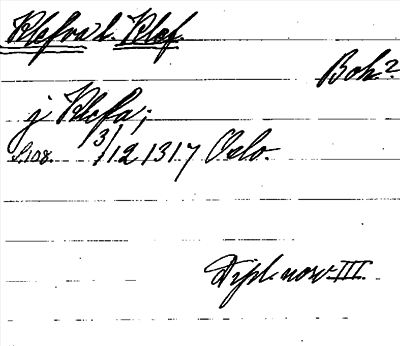 Klefva l. Klef.
Boh?
j Klefa;
S. 108. 3/12 1317 Oslo.
Dipl. norv. III.